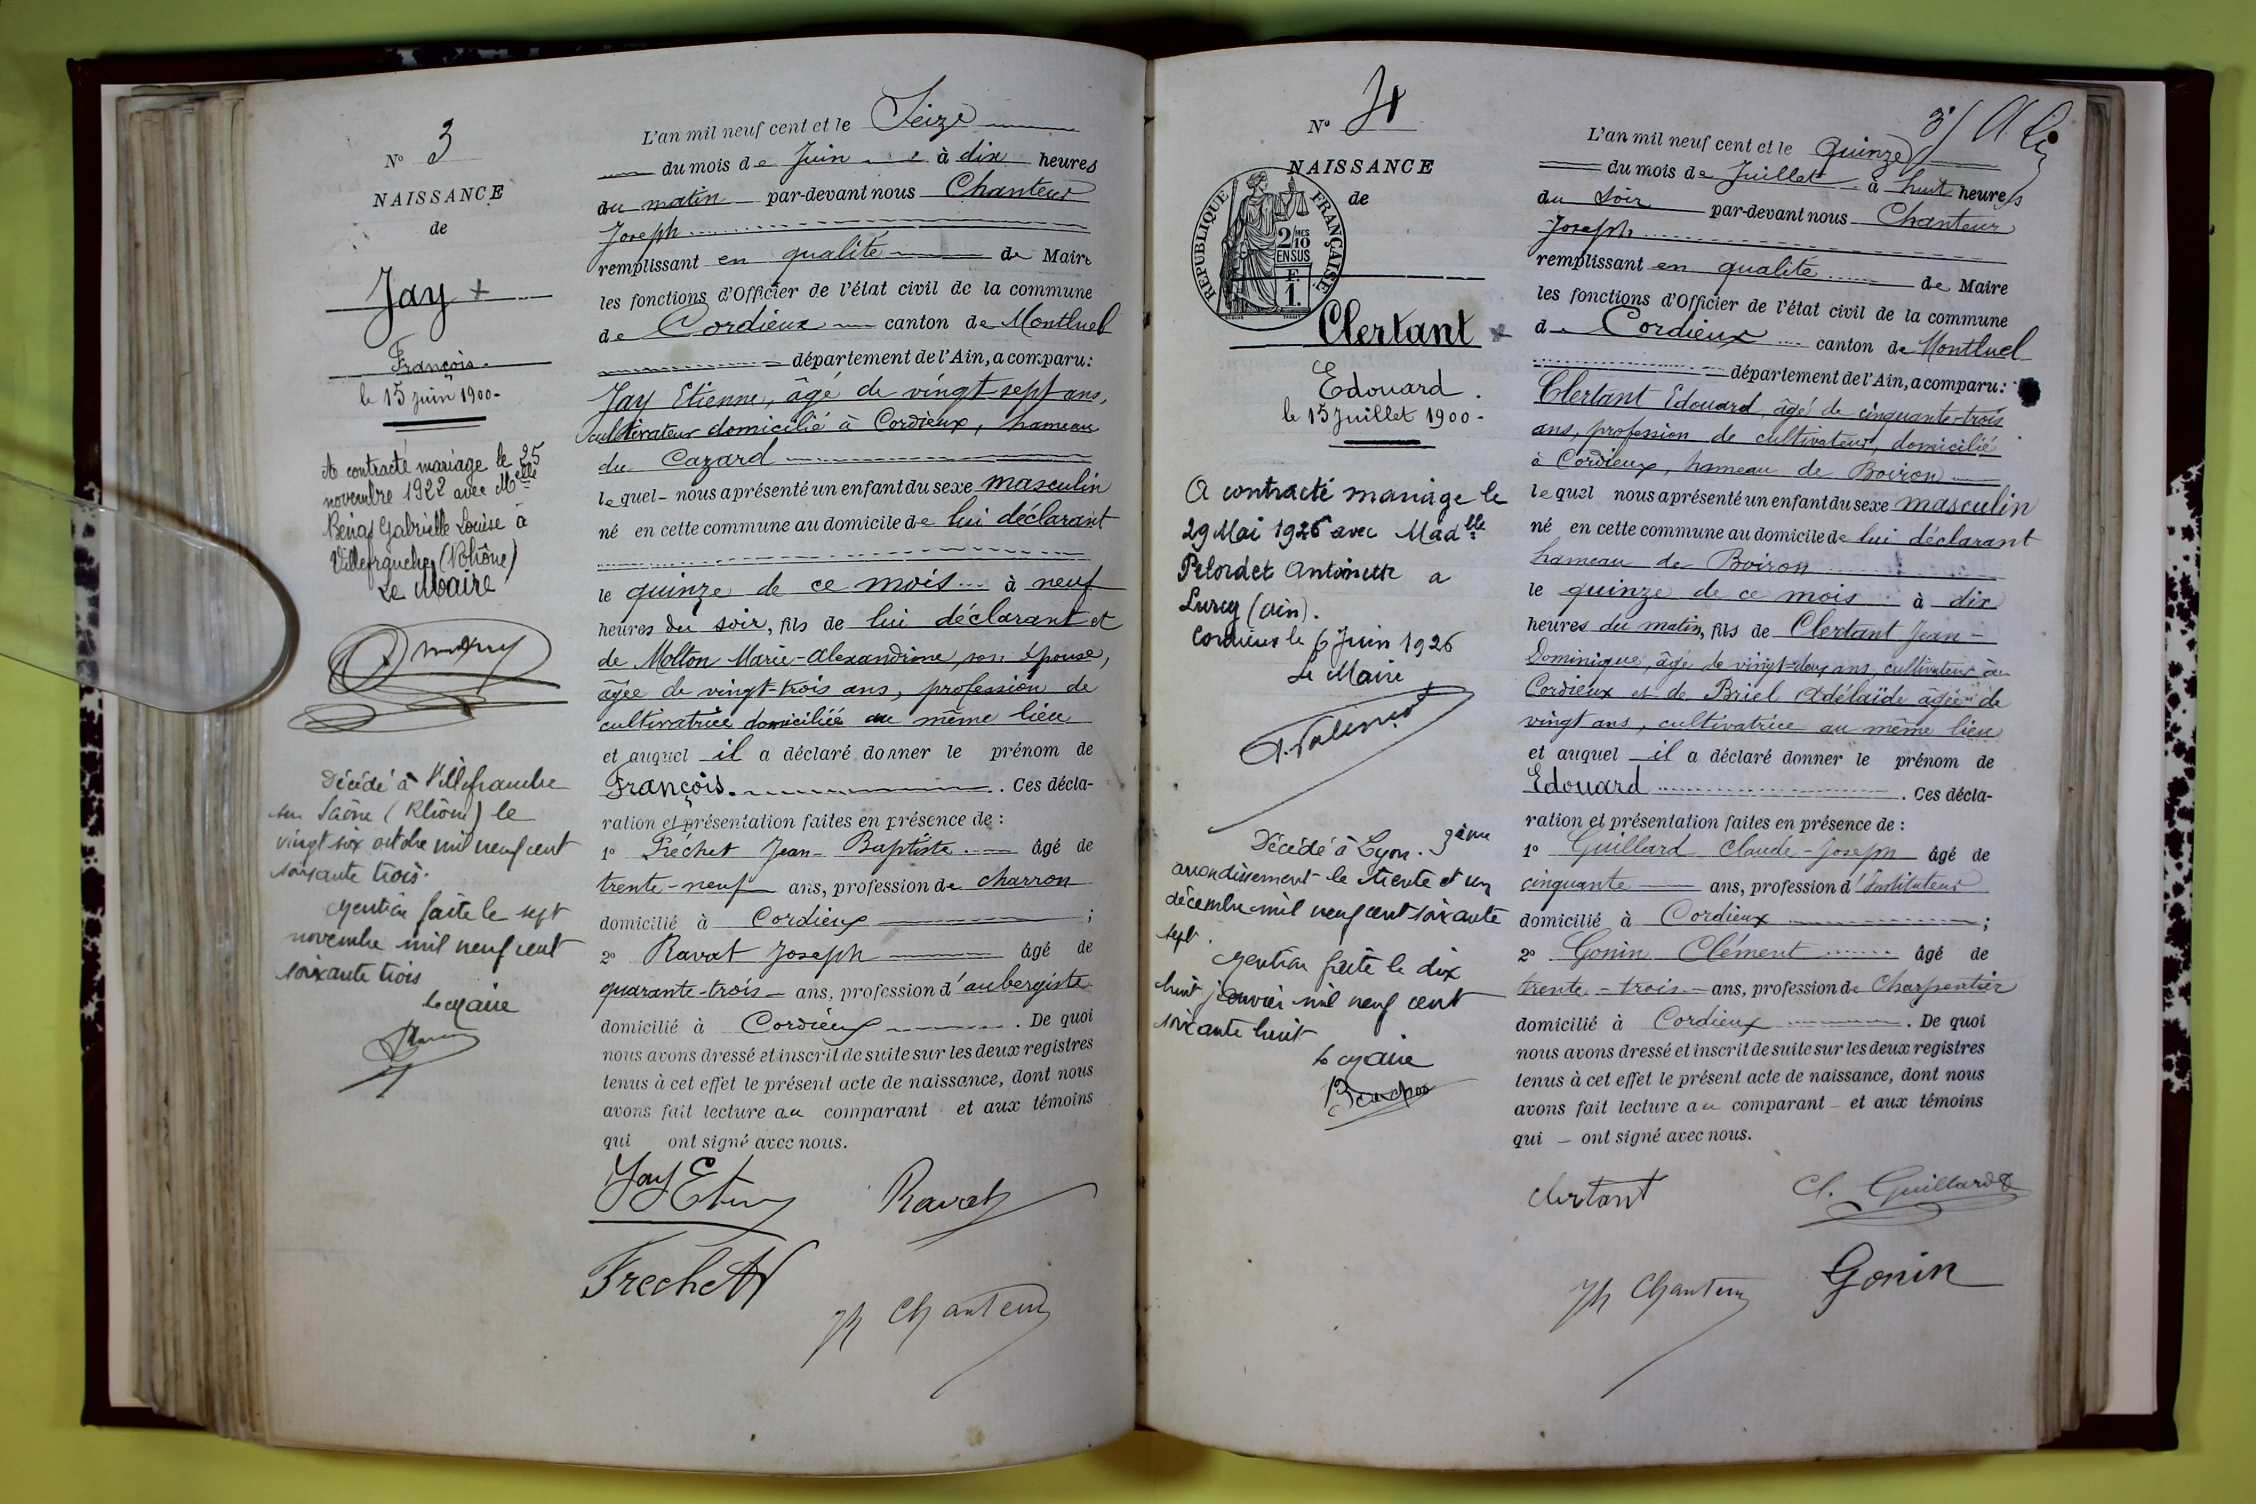 N° 3
NAISSANCE
de
Jay +
François.
le 15 juin 1900-
A contracté mariage le 25
novembre 1922 avec Melle
Gabrielle Louise à
Villefranche (Rhône)
Le Maire
Décédé à Villefranche
sur Saône (Rhône) le
vingt six octobre mil neuf cent
soixante trois.
Mention faite le sept
novembre mil neuf cent
soixante trois
Le Maire
L'an mil neuf cent et le Seize
du mois de Juin à dix heures
du matin par-devant nous Chanteur
Joseph
remplissant en qualité de Maire
les fonctions d'Officier de l'état civil de la commune
de Cordieux canton de Montluel
département de l'Ain, a comparu:
Jay Etienne, âgé de vingt sept ans,
cultivateur domicilié à Cordieux, hameau
du Cazard
lequel nous a présenté un enfant du sexe masculin
né en cette commune au domicile de lui déclarant
le quinze de ce mois à neuf
heures du soir, fils de lui déclarant et
de Molton Marie-Alexandrine son épouse,
âgée de vingt-trois ans, profession de
cultivatrice domiciliée au même lieu
et auquel il a déclaré donner le prénom de
François. . Ces décla-
ration et présentation faites en présence de :
1° Fréchet Jean-Baptiste âgé de
trente-neuf ans, profession de charron
domicilié à Cordieux ;
2° Ravat Joseph âgé de
quarante-trois ans, profession d'aubergiste
domicilié à Cordieux . De quoi
nous avons dressé et inscrit de suite sur les deux registres
tenus à cet effet le présent acte de naissance, dont nous
avons fait lecture au comparant et aux témoins
qui ont signé avec nous.
Jay Etien Ravat
Frechet
Jh Chanteur
N° 4
NAISSANCE
de
REPUBLIQUE FRANÇAISE
2/10 MES
EN SUS
F.
1.
Clertant
Edouard.
le 15 Juillet 1900-
A contracté mariage le
29 Mai 1926 avec Madlle
Pelordet Antoinette a
Lurcy (Ain).
Cordieux le 6 Juin 1926
Le Maire
Décédé à Lyon. 3ème
arrondissement le trente et un
décembre mil neuf cent soixante
sept.
Mention faite le dix
huit janvier mil neuf cent
soixante huit
Le Maire
3/
L'an mil neuf cent et le Quinze
du mois de Juillet à huit heures
du soir par-devant nous Chanteur
Joseph
remplissant en qualité de Maire
les fonctions d'Officier de l'état civil de la commune
d Cordieux canton de Montluel
département de l'Ain, a comparu:
Clertant Edouard âgé de cinquante-trois
ans, profession de cultivateur, domicilié
à Cordieux, hameau de Boiron
lequel nous a présenté un enfant du sexe masculin
né en cette commune au domicile de lui déclarant
hameau de Boiron
le quinze de ce mois à dix
heures du matin, fils de Clertant Jean-
Dominique, âgé de vingt-deux ans, cultivateur à
Cordieux et de Briel Adélaïde âgée de
vingt ans, cultivatrice au même lieu
et auquel il a déclaré donner le prénom de
Edouard . Ces décla-
ration et présentation faites en présence de :
1° Guillard Claude-Joseph âgé de
cinquante ans, profession d'Instituteur
domicilié à Cordieux ;
2° Gonin Clément âgé de
trente-trois ans, profession de Charpentier
domicilié à Cordieux . De quoi
nous avons dressé et inscrit de suite sur les deux registres
tenus à cet effet le présent acte de naissance, dont nous
avons fait lecture au comparant et aux témoins
qui ont signé avec nous.
Clertant Cl. Guillard
Jh Chanteur Gonin